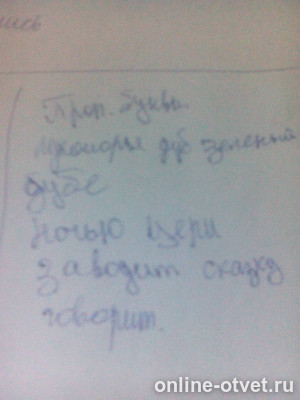 ись
Проп. буквы.
Лукоморье дуб зеленый
дубе
ночью цепи
заводит сказку
говорит.
online-otvet.ru